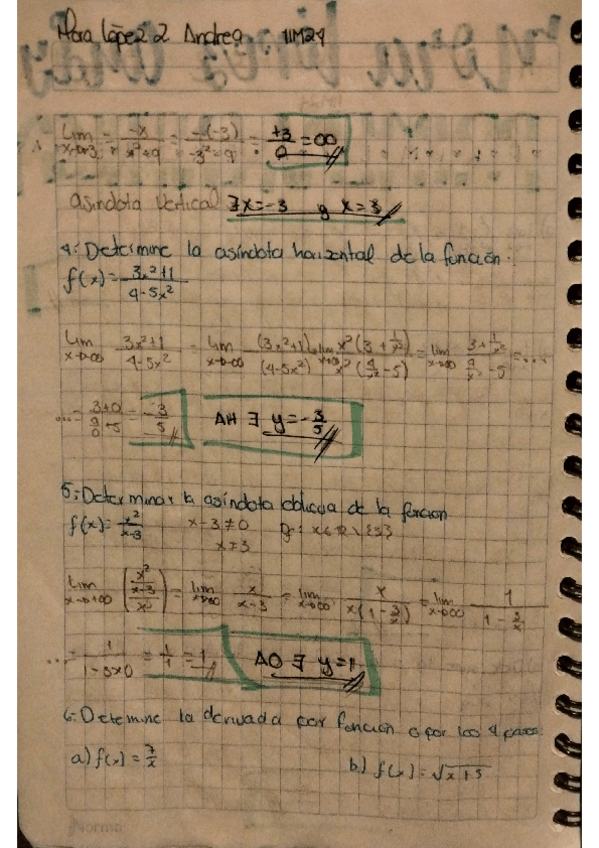 Mora López Andrea 11M24
Lim x→-3 = -x / x²+9 = -(-3) / -3²=9 = +3 / 0 = ∞
asíndota Vertical ∃ x=-3 y x=3
4: Determine la asíndota horizontal de la función:
f(x)= 3x²+1 / 4-5x²
Lim x→∞ 3x²+1 / 4-5x² = Lim x→∞ (3x²+1) / (4-5x²) = lim x→∞ x²(3+1/x²) / x²(4/x²-5) = lim x→∞ 3+1/x² / 4/x²-5 = ...
...= 3+0 / 0-5 = -3/5 AH ∃ y=-3/5
5: Determinar la asíndota oblicua de la función
f(x)= x² / x-3 x-3≠0 Df: x∈R\{3}
x≠3
lim x→+∞ (x²/x-3 / x) = lim x→∞ x / x-3 = lim x→∞ x / x(1-3/x) = lim x→∞ 1 / 1-3/x
...= 1 / 1-3×0 = 1/1 = 1 AO ∃ y=1
6: Determine la derivada por función o por los 4 pasos.
a) f(x) = 7/x b) f(x) = √x+5
Norma